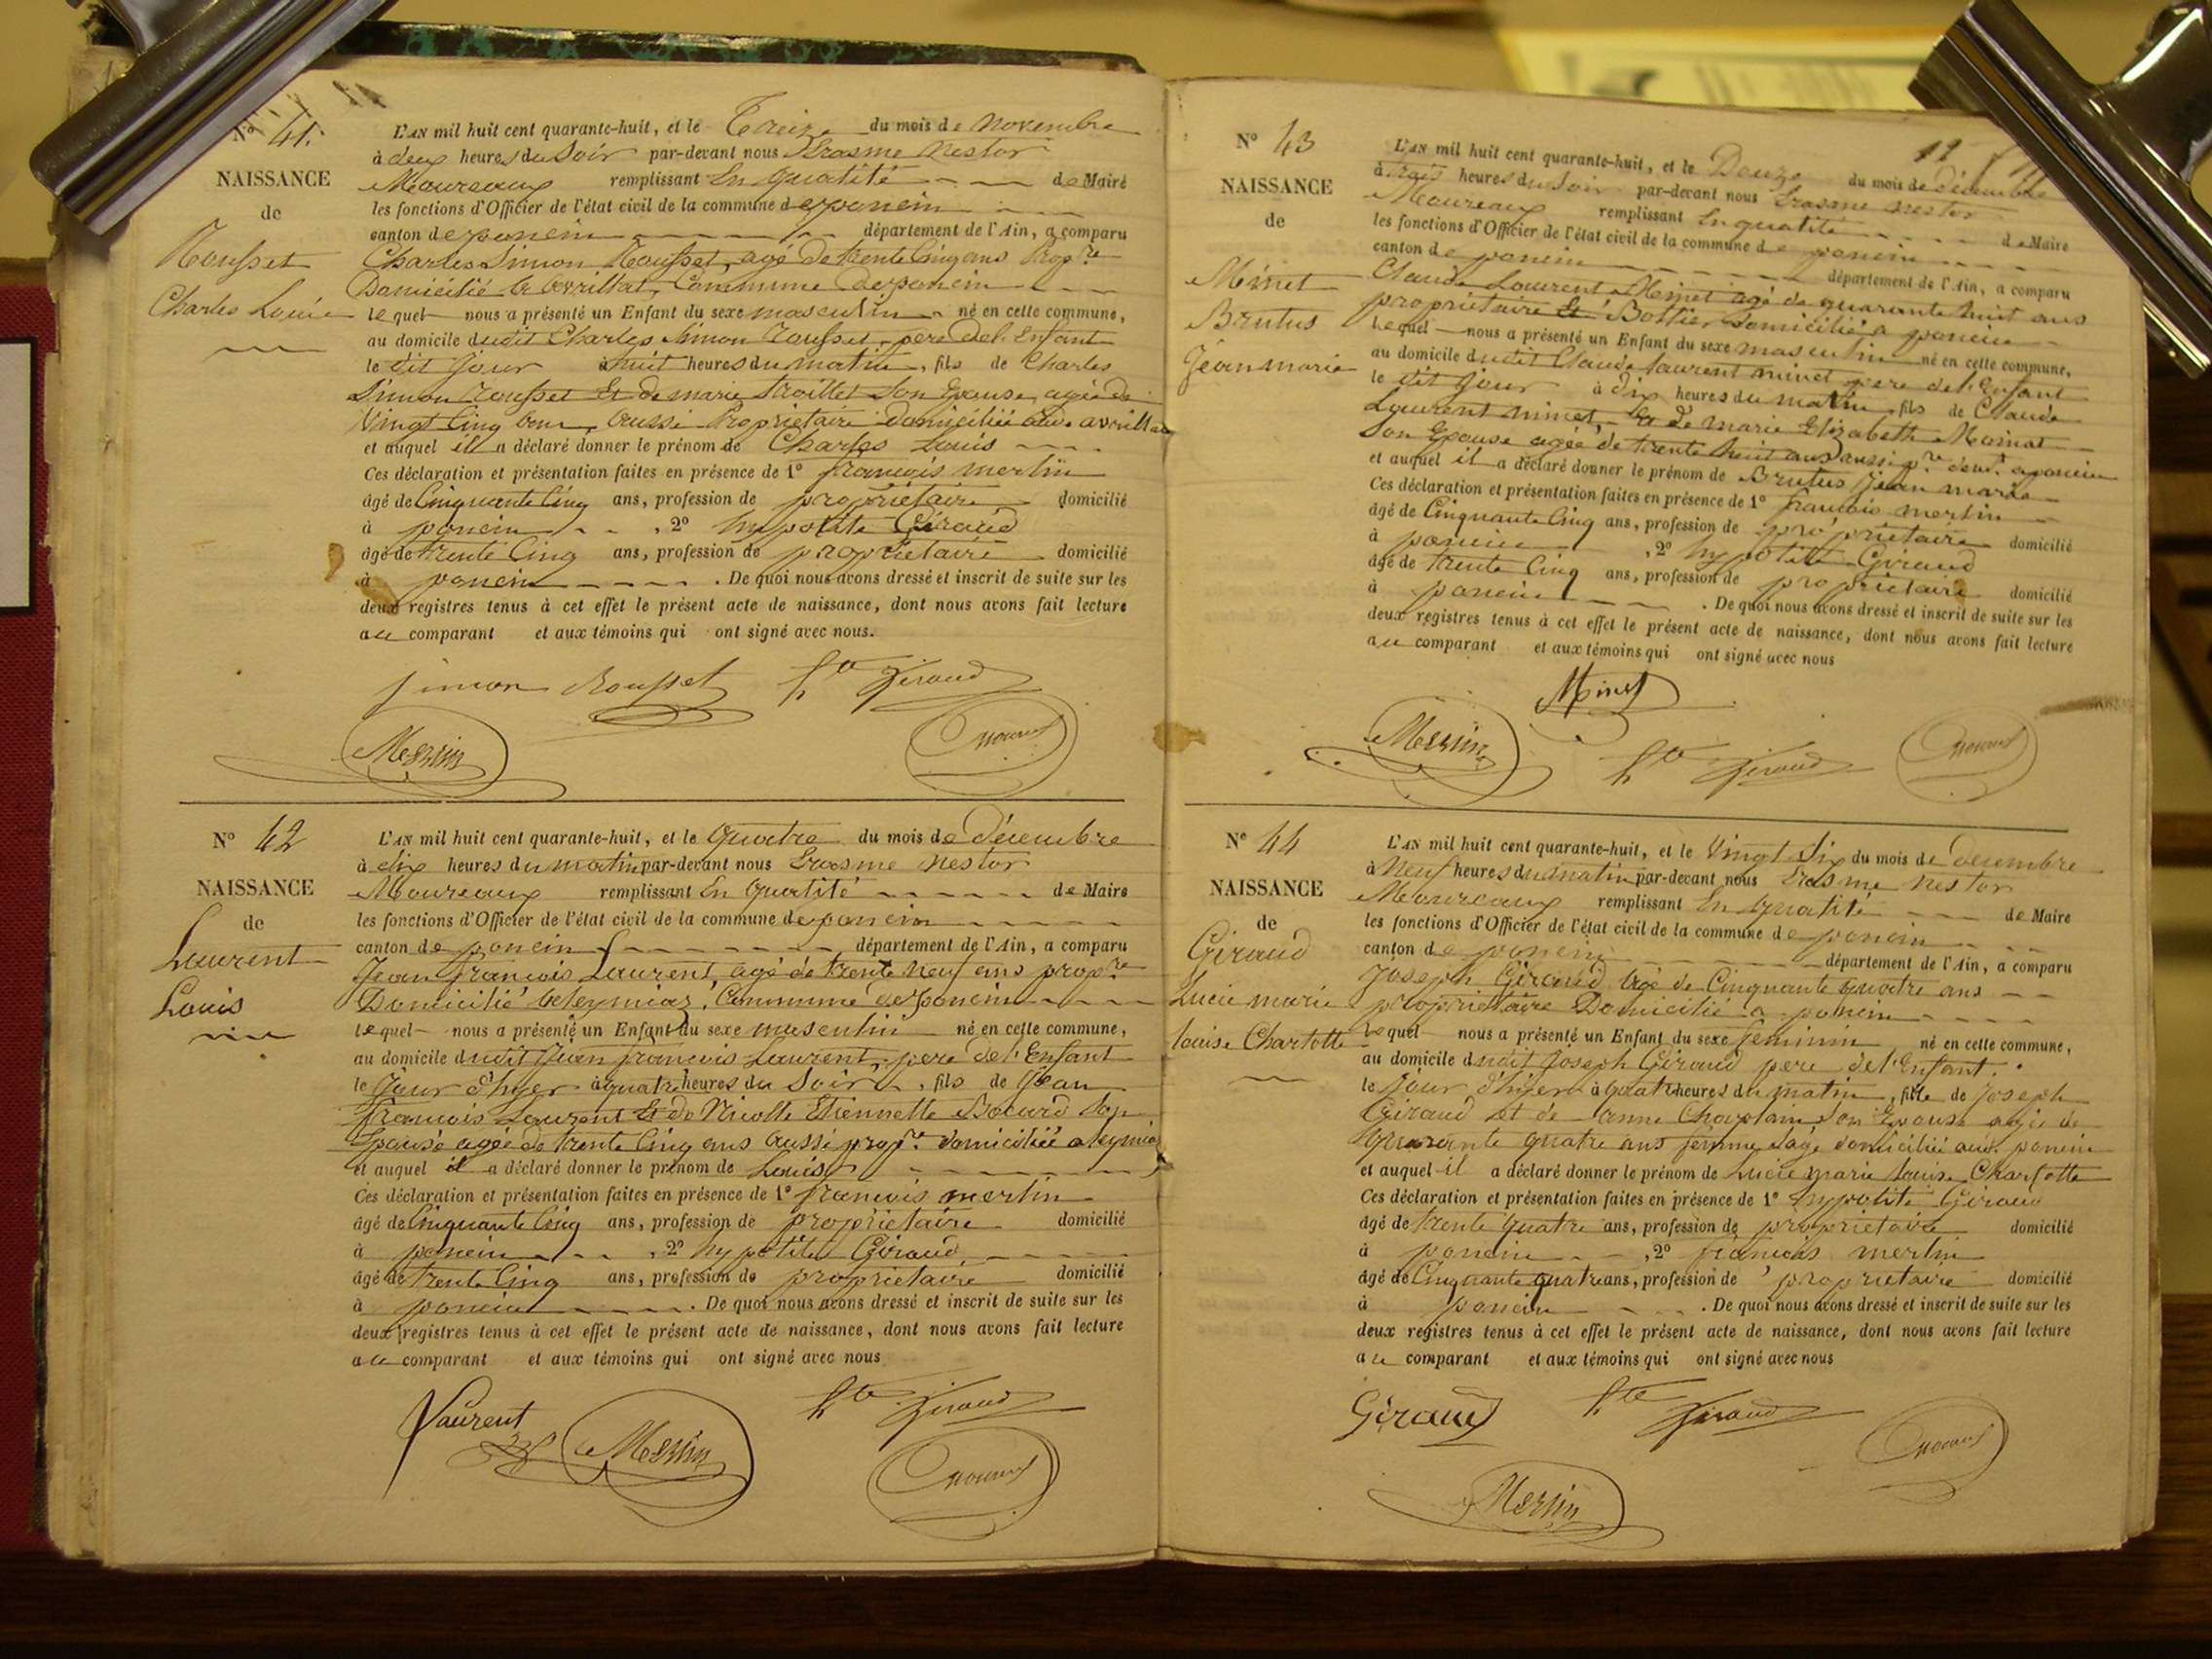 N° 41.
NAISSANCE
de
Rousset
Charles Louis
L'AN mil huit cent quarante-huit, et le Treize du mois de Novembre
à deux heures du Soir par-devant nous Erasme Nestor
Moureaux remplissant En qualité de Maire
les fonctions d'Officier de l'état civil de la commune de poncin
canton de poncin département de l'Ain, a comparu
Charles Simon Rousset, agé de trente Cinq ans Prop.re
Domicilié à avrillat, Commune de poncin
lequel nous a présenté un Enfant du sexe masculin né en cette commune,
au domicile dudit Charles Simon Rousset, pere de l'Enfant
le dit jour à huit heures du matin, fils de Charles
Simon rousset Et de marie troillet Son Epouse, agée de
Vingt Cinq ans, aussi Propriétaire Domiciliée aud. avrillat
et auquel il a déclaré donner le prénom de Charles Louis
Ces déclaration et présentation faites en présence de 1° françois merlin
âgé de Cinquante Cinq ans, profession de propriétaire domicilié
à poncin , 2° hypolite Giraud
âgé de trente Cinq ans, profession de propriétaire domicilié
à poncin . De quoi nous avons dressé et inscrit de suite sur les
deux registres tenus à cet effet le présent acte de naissance, dont nous avons fait lecture
au comparant et aux témoins qui ont signé avec nous.
simon Rousset h.te Giraud
Merlin
N° 42
NAISSANCE
de
Laurent
Louis
L'AN mil huit cent quarante-huit, et le quatre du mois de Décembre
à dix heures du matin par-devant nous Erasme Nestor
Moureaux remplissant En qualité de Maire
les fonctions d'Officier de l'état civil de la commune de poncin
canton de poncin département de l'Ain, a comparu
Jean françois Laurent, agé de trente neuf ans prop.re
Domicilié à leymiaz, Commune de poncin
lequel nous a présenté un Enfant du sexe masculin né en cette commune,
au domicile dudit Jean françois Laurent, pere de l'Enfant
le jour d'hyer à quatre heures du Soir, fils de Jean
françois Laurent Et de Nicolle Etiennette Bocard Son
Epouse agée de trente Cinq ans aussi prop.re domiciliée a leymiaz
et auquel il a déclaré donner le prénom de Louis
Ces déclaration et présentation faites en présence de 1° francois merlin
âgé de Cinquante Cinq ans, profession de propriétaire domicilié
à poncin , 2° hypolite Giraud
âgé de trente Cinq ans, profession de propriétaire domicilié
à poncin . De quoi nous avons dressé et inscrit de suite sur les
deux registres tenus à cet effet le présent acte de naissance, dont nous avons fait lecture
au comparant et aux témoins qui ont signé avec nous
Laurent Merlin h.te Giraud
N° 43
NAISSANCE
de
Minet
Brutus
Jean marie
L'AN mil huit cent quarante-huit, et le Douze du mois de Décembre
à trois heures du Soir par-devant nous Erasme Nestor
Moureaux remplissant En qualité de Maire
les fonctions d'Officier de l'état civil de la commune de poncin
canton de poncin département de l'Ain, a comparu
Claude Laurent Minet agé de quarante huit ans
propriétaire Et Bottier, domicilié a poncin
lequel nous a présenté un Enfant du sexe masculin né en cette commune,
au domicile dudit Claude laurent minet pere de l'Enfant
le dit jour à dix heures du matin, fils de Claude
Laurent minet, Et de Marie Elizabeth Mornat
Son Epouse agée de trente huit ans aussi p.re dom. a poncin
et auquel il a déclaré donner le prénom de Brutus Jean marie
Ces déclaration et présentation faites en présence de 1° francois merlin
âgé de Cinquante Cinq ans, profession de propriétaire domicilié
à poncin , 2° hypolite Giraud
âgé de trente Cinq ans, profession de propriétaire domicilié
à poncin . De quoi nous avons dressé et inscrit de suite sur les
deux registres tenus à cet effet le présent acte de naissance, dont nous avons fait lecture
au comparant et aux témoins qui ont signé avec nous
Minet
Merlin h.te Giraud
N° 44
NAISSANCE
de
Giraud
Lucie marie
louise Charlotte
L'AN mil huit cent quarante-huit, et le Vingt Six du mois de Decembre
à Neuf heures du matin par-devant nous Erasme Nestor
Moureaux remplissant En qualité de Maire
les fonctions d'Officier de l'état civil de la commune de poncin
canton de poncin département de l'Ain, a comparu
Joseph Giraud, agé de Cinquante quatre ans
propriétaire Domicilié a poncin
lequel nous a présenté un Enfant du sexe feminin né en cette commune,
au domicile dudit Joseph Giraud pere de l'Enfant.
le jour d'hier à quatre heures du matin, fille de Joseph
Giraud et de anne Chaplan Son Epouse agée de
quarante quatre ans femme sage domiciliée aud. poncin
et auquel il a déclaré donner le prénom de Lucie marie louise Charlotte
Ces déclaration et présentation faites en présence de 1° hypolite Giraud
âgé de trente quatre ans, profession de propriétaire domicilié
à poncin , 2° francois merlin
âgé de Cinquante quatre ans, profession de propriétaire domicilié
à poncin . De quoi nous avons dressé et inscrit de suite sur les
deux registres tenus à cet effet le présent acte de naissance, dont nous avons fait lecture
au comparant et aux témoins qui ont signé avec nous
Giraud h.te Giraud
Merlin